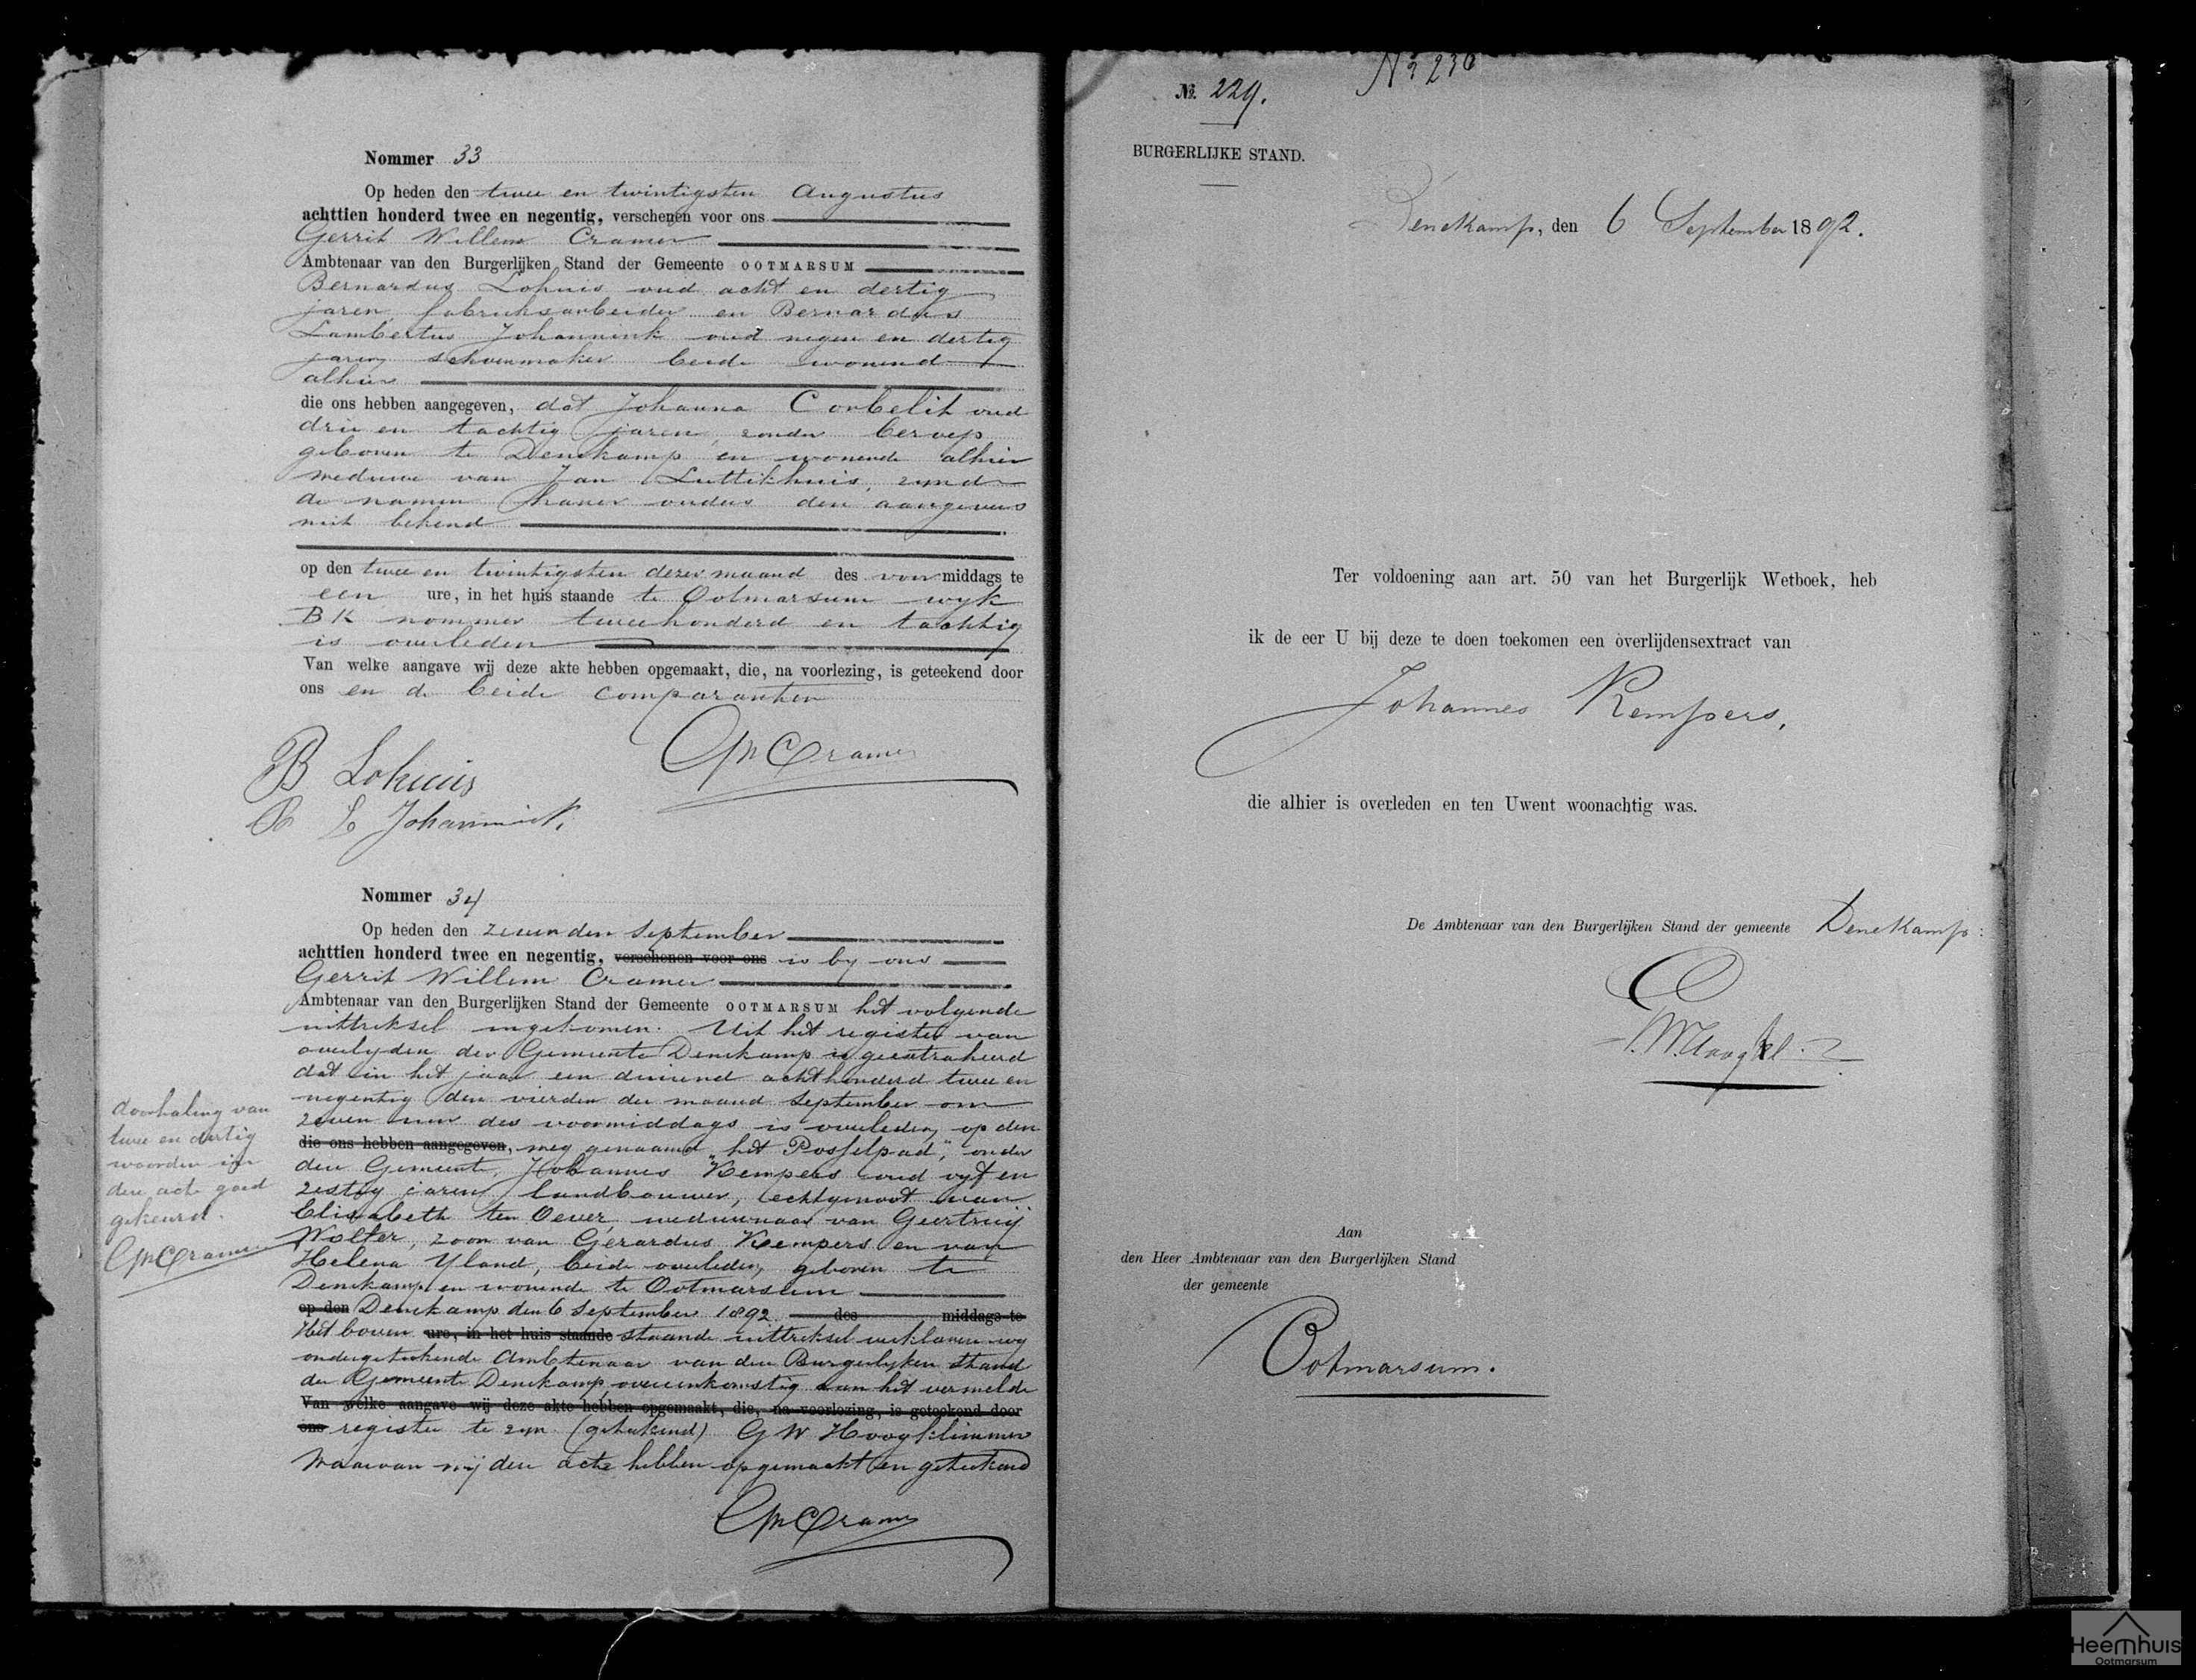 Nommer 33
Op heden den twee en twintigsten Augustus
achttien honderd twee en negentig, verschenen voor ons
Gerrit Willem Cramer
Ambtenaar van den Burgerlijken Stand der Gemeente OOTMARSUM
Bernardus Lohuis oud acht en dertig
jaren, fabrieksarbeider en Bernardus
Lambertus Johannink oud negen en dertig
jaren schoenmaker beide wonend
alhier
die ons hebben aangegeven, dat Johanna Corbelit oud
drie en tachtig jaren, zonder beroep
geboren te Denekamp en wonende alhier
weduwe van Jan Luttikhuis, zynde
de namen harer ouders den aangevers
niet bekend
op den twee en twintigsten dezer maand des voormiddags te
een ure, in het huis staande te Ootmarsum wyk
BK nommer tweehonderd en tachtig
is overleden
Van welke aangave wij deze akte hebben opgemaakt, die, na voorlezing, is geteekend door
ons en de beide comparanten
GWCramer
B Lohuis
B L Johannink.
Nommer 34
Op heden den zevenden September
achttien honderd twee en negentig, verschenen voor ons is by ons
Gerrit Willem Cramer
Ambtenaar van den Burgerlijken Stand der Gemeente OOTMARSUM het volgende
uittreksel ingekomen. Uit het register van
overlyden der Gemeente Denekamp is geextraheerd
dat in het jaar een duizend achthonderd twee en
negentig den vierden der maand September om
zeven uur des voormiddags is overleden, op den
die ons hebben aangegeven, weg genaamd "het Posselpad", onder
deze Gemeente, Johannes Kempers oud vyf en
zestig jaren, landbouwer, echtgenoot van
Elisabeth ten Oever, weduwnaar van Geertruij
Wolter, zoon van Gerardus Kempers en van
Helena Yland, beide overleden, geboren te
Denekamp en wonende te Ootmarsum
op den Denekamp den 6 September 1892. des middags te
Het boven ure, in het huis staande staande uittreksel verklaren wy
ondergeteekende Ambtenaar van den Burgerlyken stand
der Gemeente Denekamp, overeenkomstig aan het vermelde
Van welke aangave wij deze akte hebben opgemaakt, die, na voorlezing, is geteekend door
ons register te zyn (geteekend) G W Hoogklimmer
Waarvan wij deze acte hebben opgemaakt en geteekend
GWCramer
doorhaling van
twee en dertig
woorden in
deze acte goed
gekeurd.
GWCramer
No. 229.
No 230
BURGERLIJKE STAND.
Denekamp, den 6 September 1892.
Ter voldoening aan art. 50 van het Burgerlijk Wetboek, heb
ik de eer U bij deze te doen toekomen een overlijdensextract van
Johannes Kempers,
die alhier is overleden en ten Uwent woonachtig was.
De Ambtenaar van den Burgerlijken Stand der gemeente Denekamp:
Aan
den Heer Ambtenaar van den Burgerlijken Stand
der gemeente
Ootmarsum.
Heemhuis
Ootmarsum